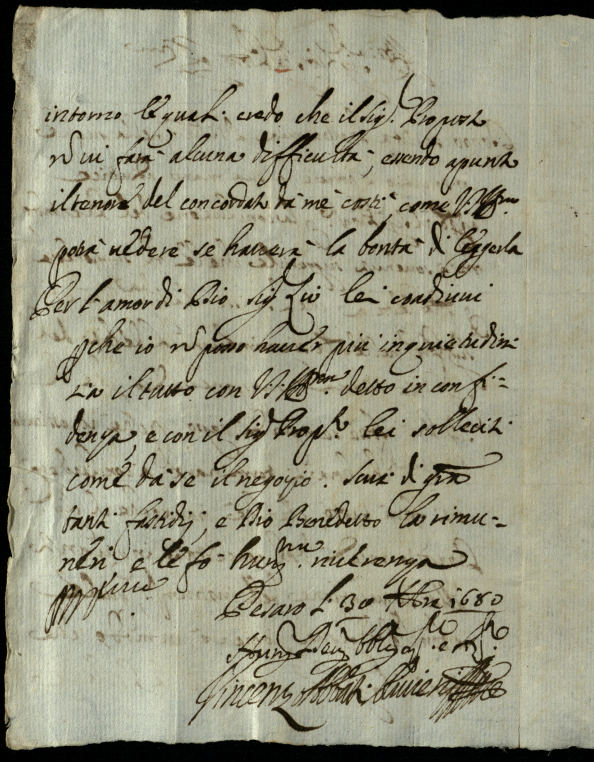 intorno le quali credo che il Sig.r Propost
n vi farà alcuna difficultà, essendo apunt
il tenore del concordato da me costì, come V.S. Ill.ma
potrà vedere se haverà la bontà di leggerla
Per l'amor di Dio Sig.r lei coadiuvi
pche io n posso haver più inquietudini
il tutto con V.S. Ill.ma detto in confi-
denza, e con il Sig.r Prop.to lei solleciti
come da se il negozio. Scusi di gra
tanti fastidij, e Dio Benedetto la rimu-
neri e le fò hum.ma riverenza
Pesaro li 30 Xbre 1680
Vincenzo Abbati Olivieri